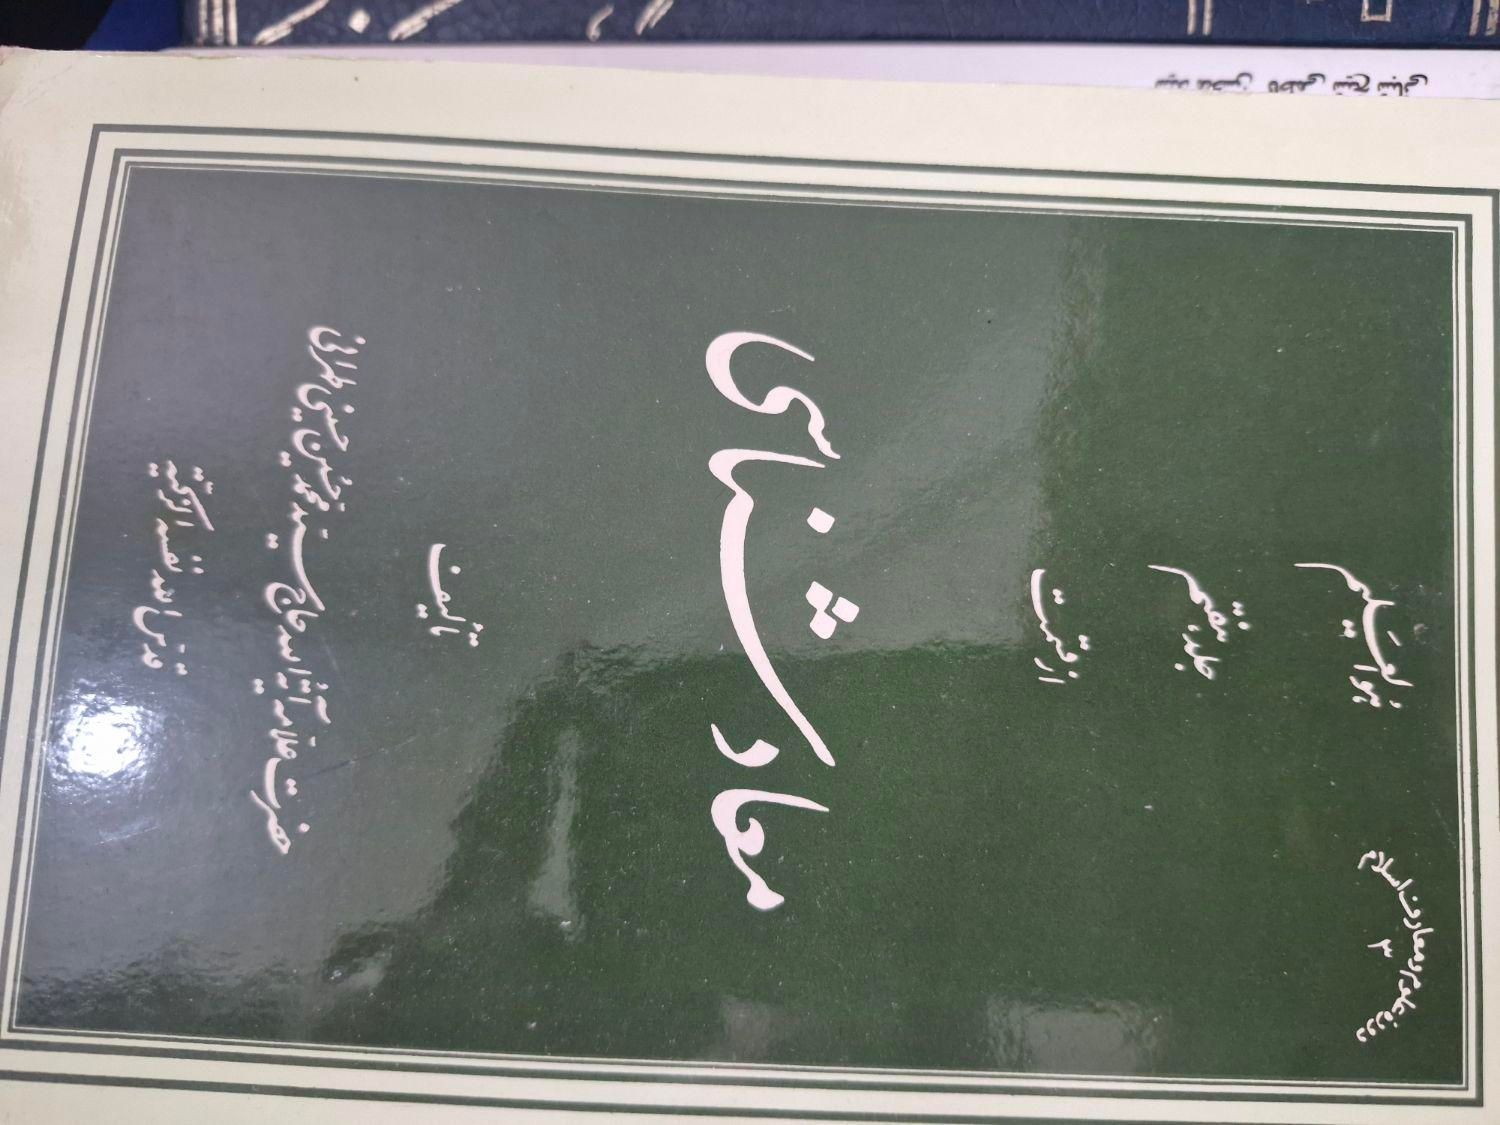 دورهٔ علوم و معارف اسلام
۳
هو العلیم
جلد هفتم
از قسمت
معاد شناسی
تألیف
حضرت علامه آیة الله حاج سید محمد حسین حسینی طهرانی
قدس الله نفسه الزکیة